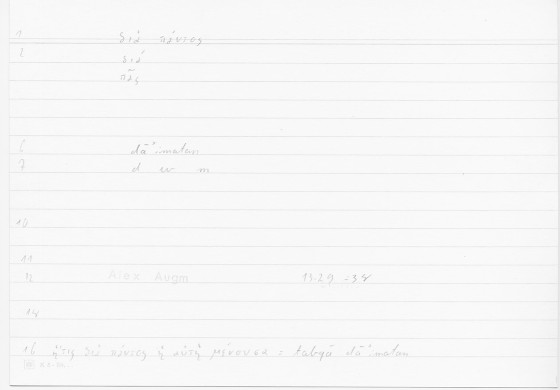 1 διὰ παντός
2 διά
πᾶς
6 dāʾiman
7 d w m
10
11
12 Alex Augm 13.29 -38
14
16 ἥτις διὰ παντὸς ἡ αὐτὴ μένουσα = tabqā dāʾiman